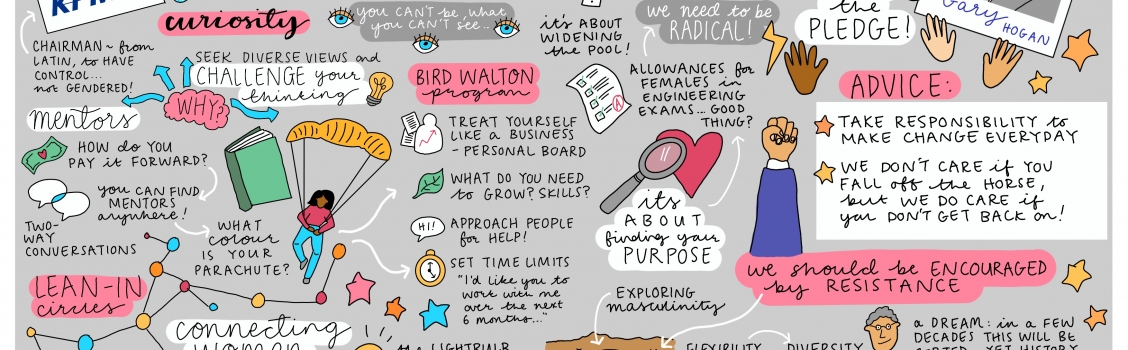 KPMG
curiosity
you CAN'T be what
you CAN'T see...
it's ABOUT
WIDENING
the POOL!
we need to be
RADICAL!
the
PLEDGE!
Gary
HOGAN
CHAIRMAN ~ from
LATIN, to HAVE
CONTROL...
not GENDERED!
SEEK DIVERSE VIEWS and
CHALLENGE your
thinking
WHY?
BIRD WALTON
program
ALLOWANCES for
FEMALES in
ENGINEERING
EXAMS...GOOD
THING?
ADVICE:
mentors
HOW do YOU
PAY it FORWARD?
you CAN FIND
MENTORS
anywhere!
TWO-
WAY
CONVERSATIONS
WHAT
colour
IS YOUR
PARACHUTE?
TREAT YOURSELF
LIKE a BUSINESS
- PERSONAL BOARD
WHAT DO YOU NEED
to GROW? SKILLS?
HI!
APPROACH PEOPLE
for HELP!
SET TIME LIMITS
"I'd like you to
work with me
over the next
6 months..."
A
it's
ABOUT
finding your
PURPOSE
TAKE RESPONSIBILITY to
MAKE CHANGE EVERYDAY
WE DON'T CARE if YOU
FALL off the HORSE,
but WE DO CARE if
you DON'T GET BACK on!
we should be ENCOURAGED
by RESISTANCE
LEAN-IN
circles
connecting
WOMEN
EXPLORING
masculinity
the LIGHTBULB
FLEXIBILITY
DIVERSITY
a DREAM: in a FEW
DECADES THIS WILL BE
SORTED. YET HISTORY